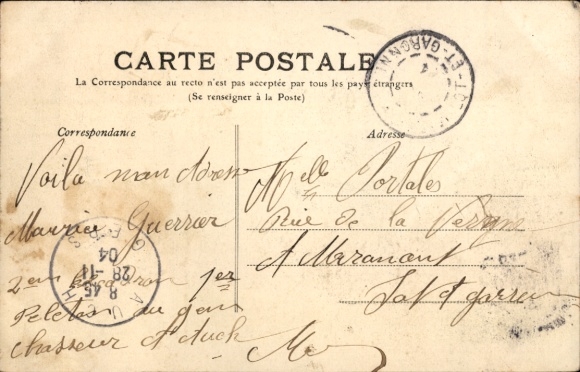 CARTE POSTALE
La Correspondance au recto n'est pas acceptée par tous les pays étrangers
(Se renseigner à la Poste)
Correspondance
Adresse
Voila mon Adresse
Maurice Guerrier
2em escadron 1er
Peleton au
chasseur A Auch
Melle Portales
Rue de la
A
ET-GARONNE
AUCH
GERS
8 45
28-11
04